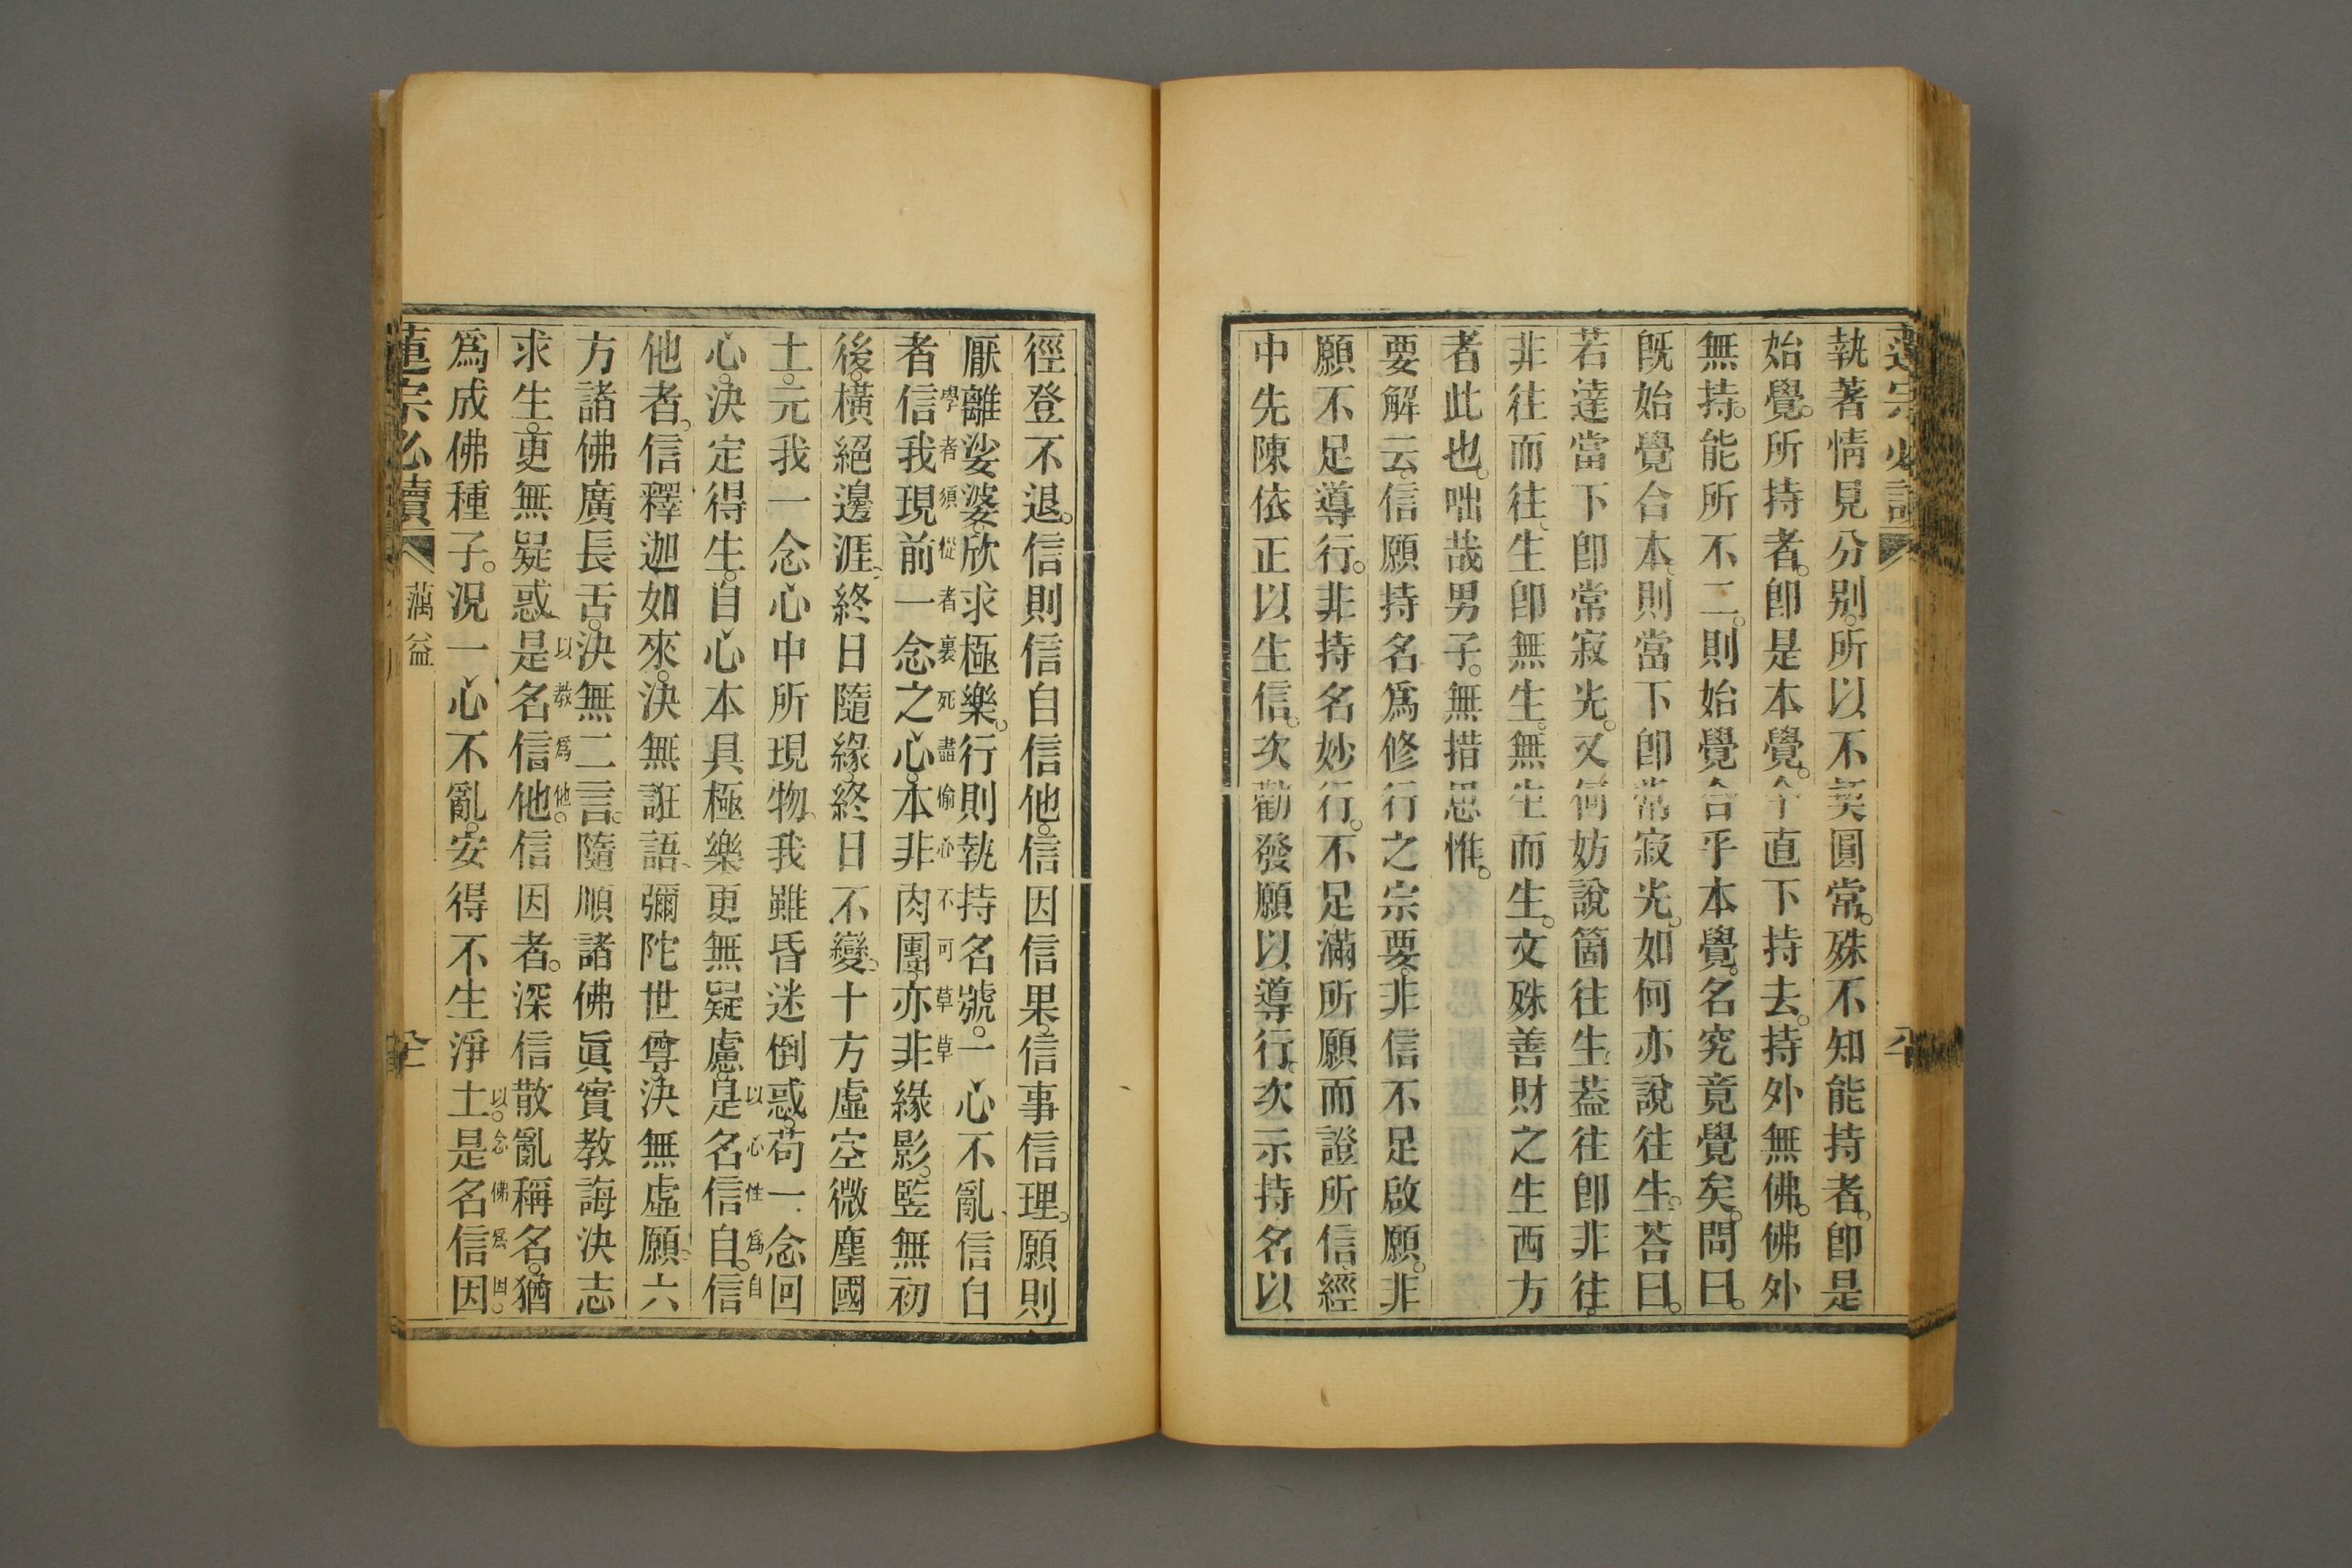 執著情見分別。所以不契圓常。殊不知能持者。卽是
始覺。所持者。卽是本覺。今直下持去。持外無佛。佛外
無持。能所不二。則始覺合乎本覺。名究竟覺矣。問曰。
旣始覺合本、則當下卽常寂光。如何亦說往生。荅曰。
若達當下卽常寂光。又何妨說箇往生、葢往卽非往。
非往而往、生卽無生。無生而生。文殊善財之生西方
者此也。咄哉男子。無措思惟。
要解云、信願持名爲修行之宗要。非信不足啟願。非
願不足導行。非持名妙行。不足滿所願而證所信、經
中先陳依正以生信。次勸發願以導行。次示持名以
徑登不退。信則信自信他。信因信果。信事信理。願則
厭離娑婆。欣求極樂。行則執持名號。一心不亂、信自
者信我現前一念之心。本非肉團。亦非緣影。竪無初
學者須從者裏死盡偷心不可草草
後。橫絕邊涯、終日隨緣。終日不變。十方虛空微塵國
土。元我一念心中所現物、我雖昏迷倒惑。苟一念回
心。決定得生。自心本具極樂更無疑慮。是名信自。信
以心性爲自
他者。信釋迦如來。決無誑語、彌陀世尊。決無虛願、六
方諸佛廣長舌。決無二言。隨順諸佛眞實教誨決志
求生。更無疑惑、是名信他。信因者。深信散亂稱名。猶
以教爲他。
爲成佛種子。況一心不亂。安得不生淨土。是名信因。
以念佛爲因。
蓮宗必讀
蕅益